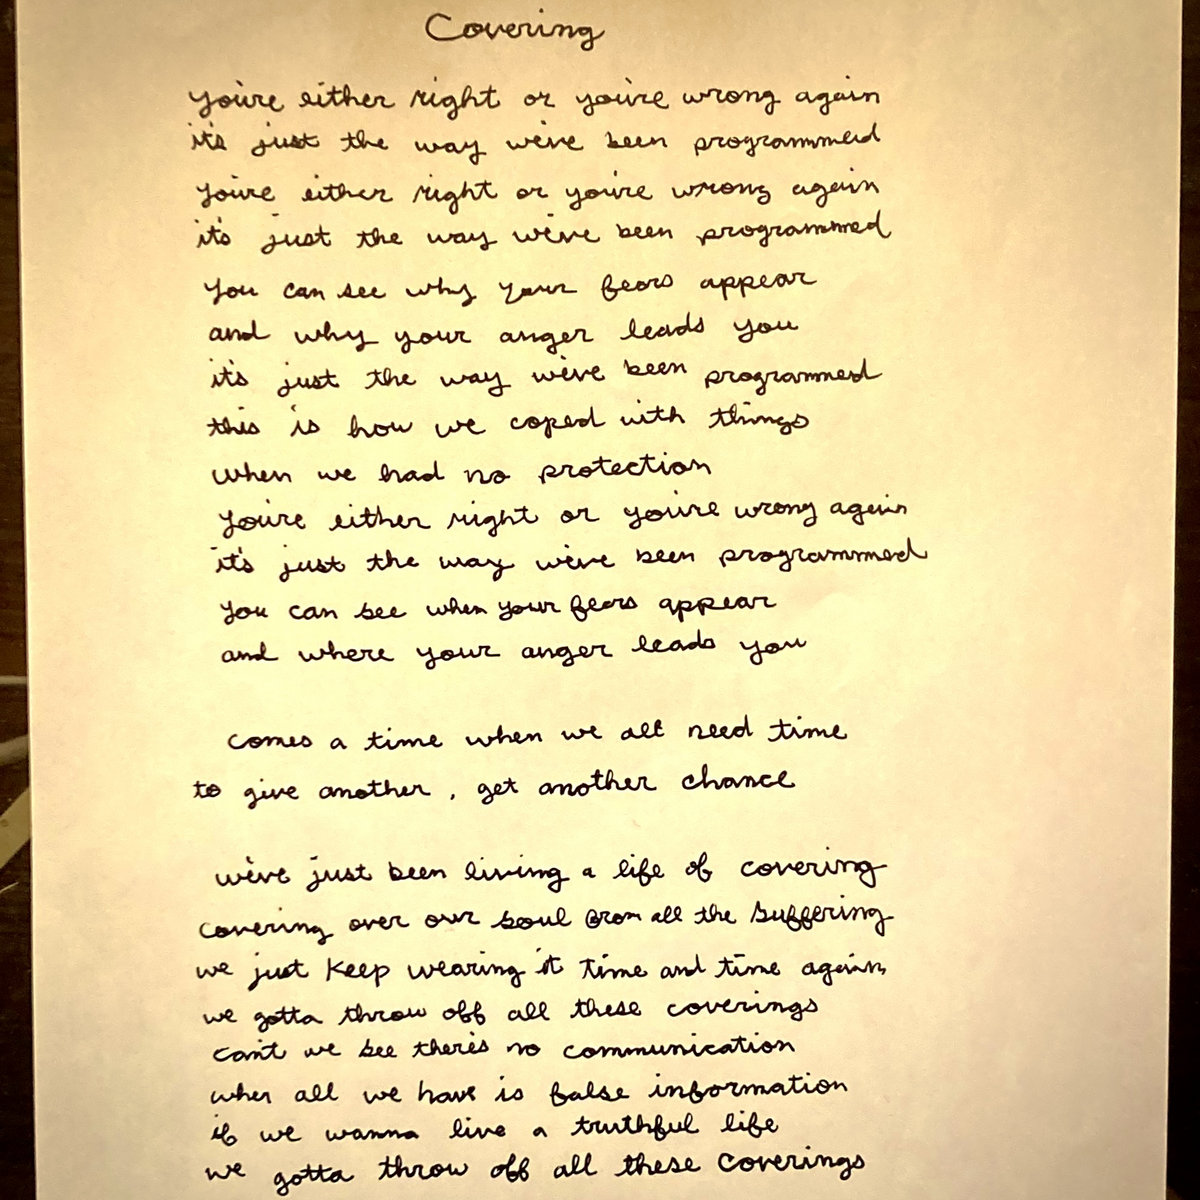 Covering
You're either right or you're wrong again
it's just the way we've been programmed
You're either right or you're wrong again
it's just the way we've been programmed
You can see why your fears appear
and why your anger leads you
it's just the way we've been programmed
this is how we coped with things
when we had no protection
You're either right or you're wrong again
it's just the way we've been programmed
You can see when your fears appear
and where your anger leads you
comes a time when we all need time
to give another, get another chance
we've just been living a life of covering
covering over our soul from all the suffering
we just keep wearing it time and time again
we gotta throw off all these coverings
can't we see there's no communication
when all we have is false information
if we wanna live a truthful life
we gotta throw off all these coverings